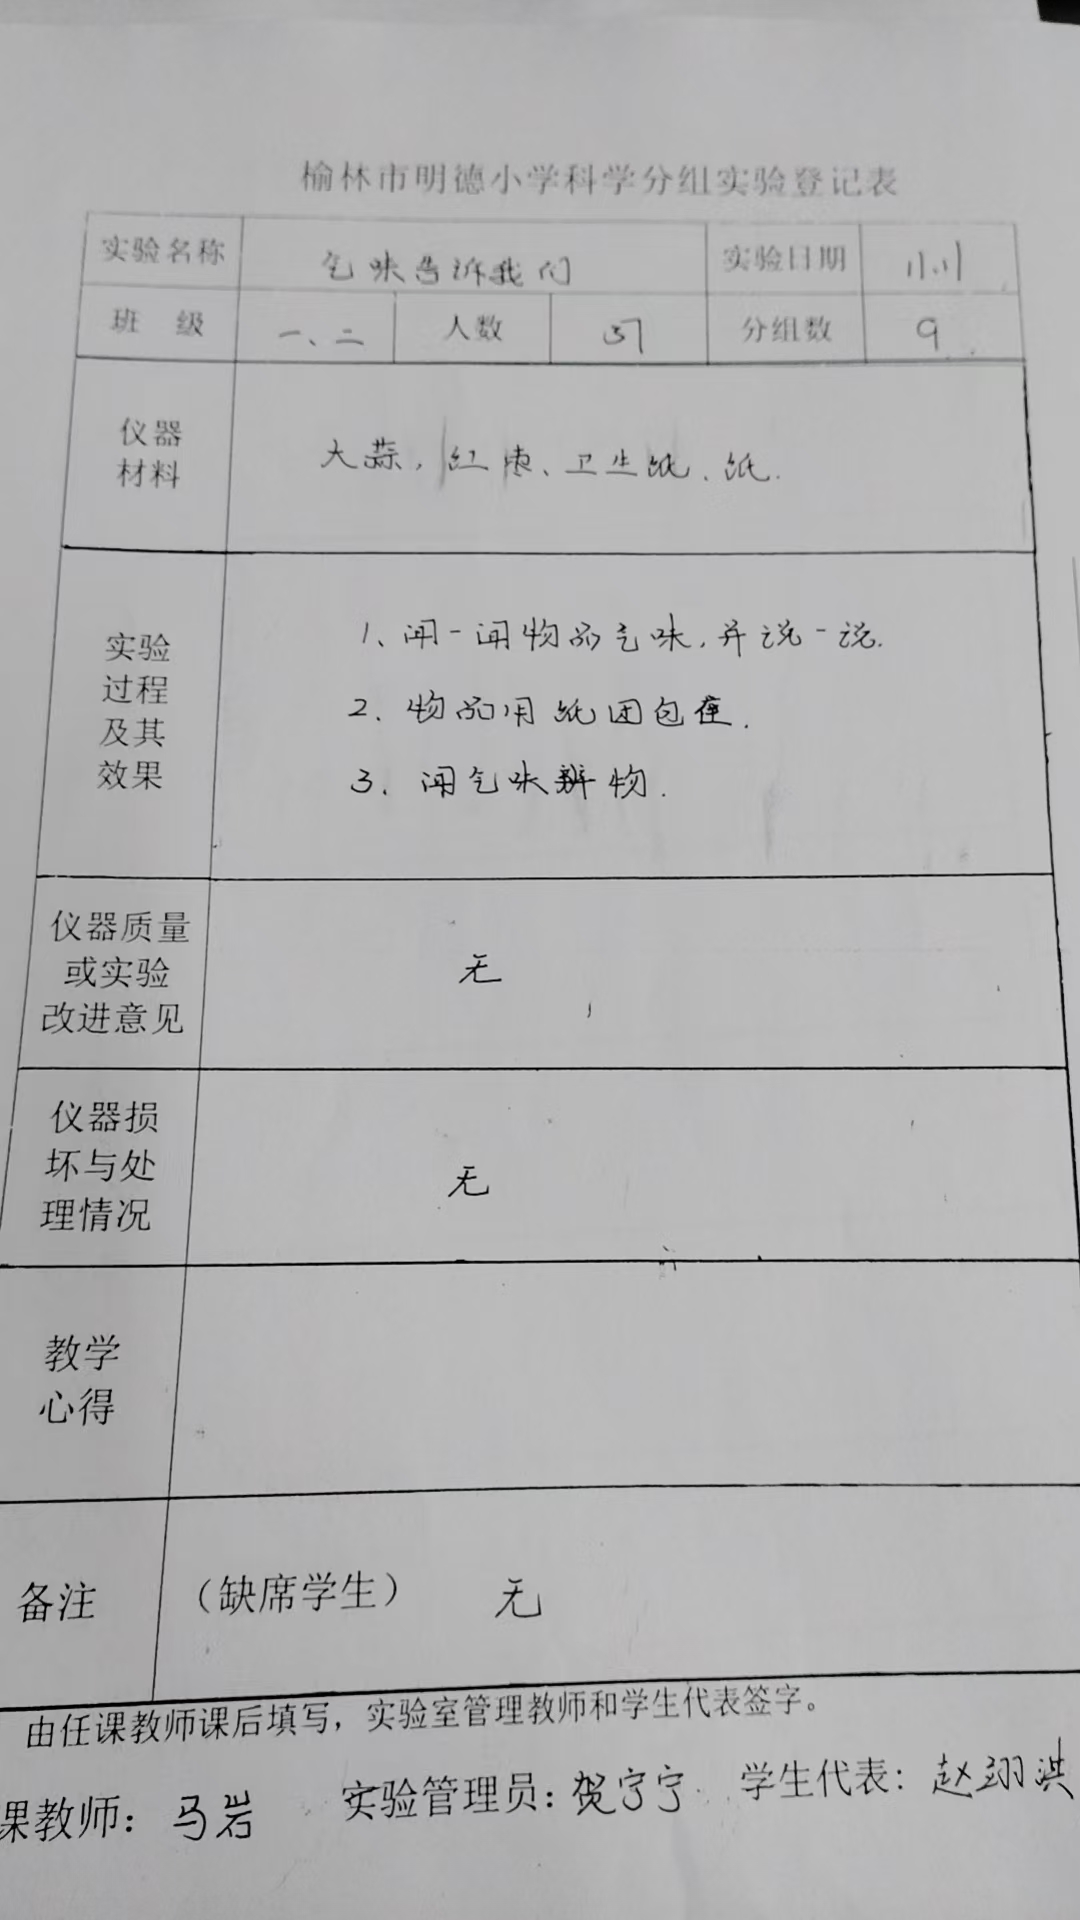 榆林市明德小学科学分组实验登记表
实验名称 气味告诉我们 实验日期 11.11
班 级 一、二 人数 37 分组数 9
仪器
材料
大蒜，红枣、卫生纸、纸.
实验
过程
及其
效果
1、闻一闻物品气味，并说一说.
2、物品用纸团包住.
3、闻气味辨物.
仪器质量
或实验
改进意见
无
仪器损
坏与处
理情况
无
教学
心得
备注 （缺席学生） 无
由任课教师课后填写，实验室管理教师和学生代表签字。
课教师：马岩 实验管理员：贺宁宁 学生代表：赵翊淇